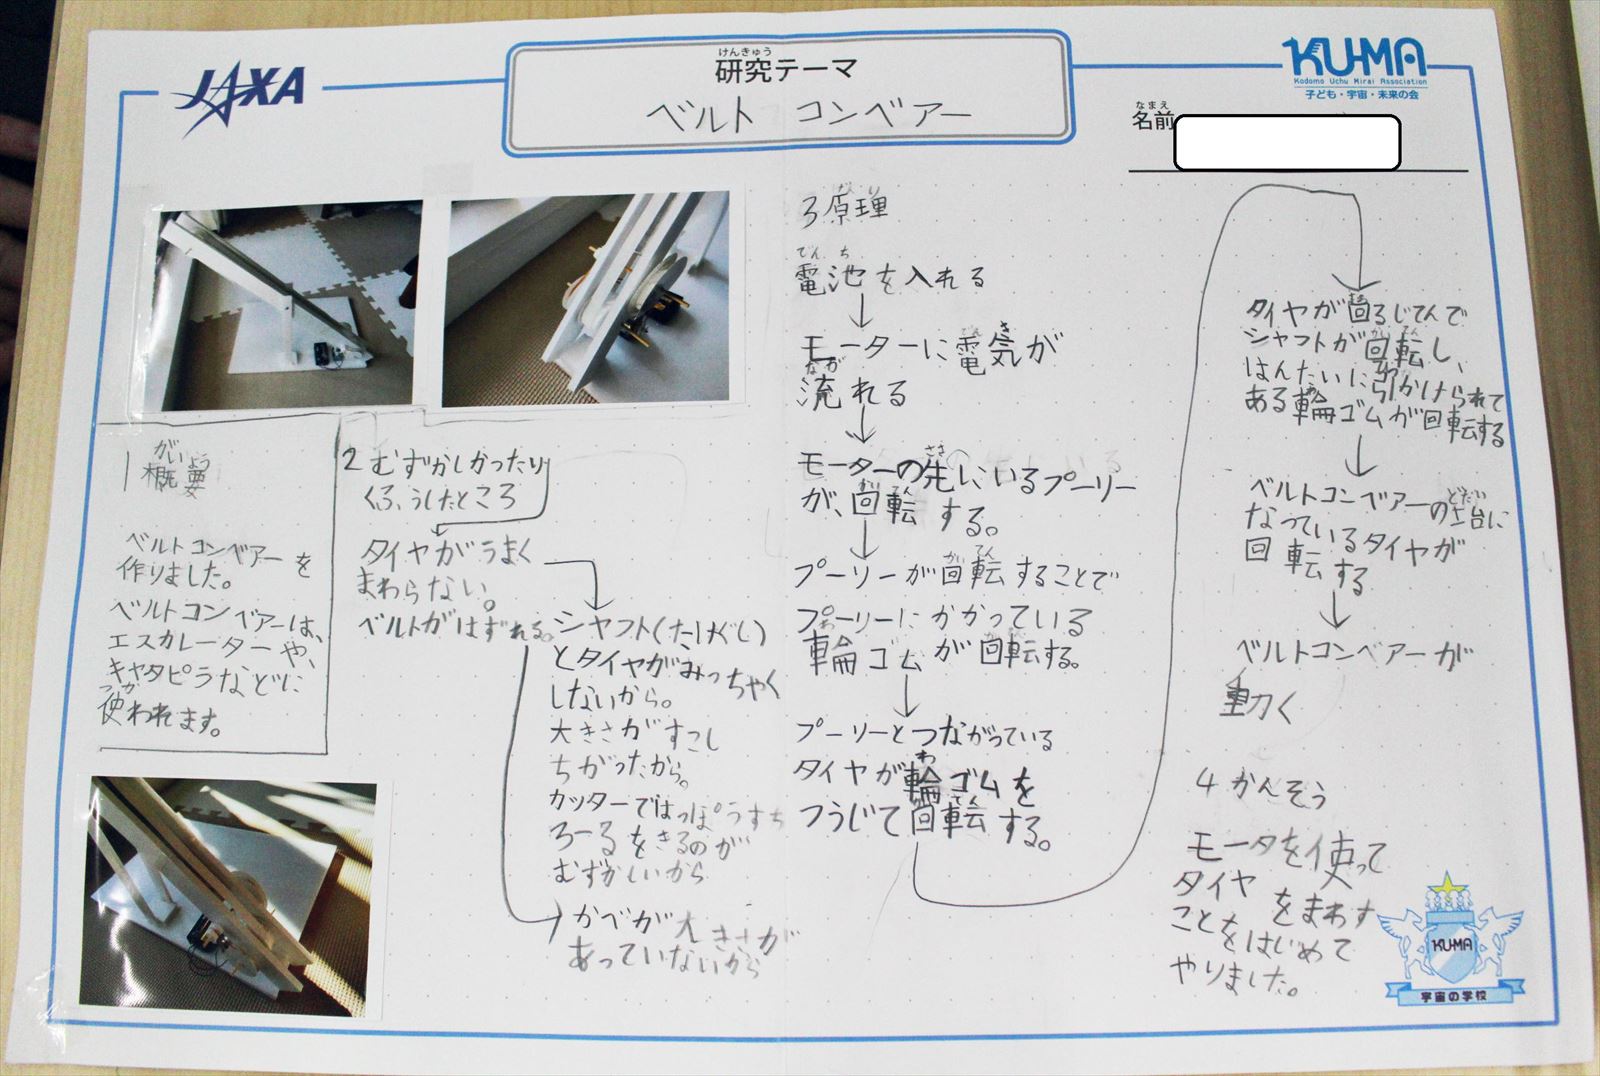 JAXA
けんきゅう
研究テーマ
ベルト コンベアー
KU-MA
Kodomo Uchu Mirai Association
子ども・宇宙・未来の会
なまえ
名前
がいよう
1 概要
ベルトコンベアーを
作りました。
ベルトコンベアーは、
エスカレーターや、
キャタピラなどに
つか
使われます。
2 むずかしかったり
くふうしたところ
タイヤがうまく
まわらない。
ベルトがはずれる。
シャフト(たけぐし)
とタイヤがみっちゃく
しないから。
大きさがすこし
ちがったから。
カッターではっぽうすち
ろーるをきるのが
むずかしいから
かべが大きさが
あっていないから
げんり
3 原理
でんち
電池を入れる
でんき
モーターに電気が
なが
流れる
さき
モーターの先にいるプーリー
が、回転する。
かいてん
プーリーが回転することで
プーリーにかかっている
わ
輪ゴムが回転する。
プーリーとつながっている
わ
タイヤが輪ゴムを
つうじて回転する。
タイヤが回るじてんで
シャフトが回転し、
はんたいに引かけられて
ある輪ゴムが回転する
どだい
ベルトコンベアーの土台に
なっているタイヤが
回転する
ベルトコンベアーが
動く
4 かんそう
モータを使って
タイヤをまわす
ことをはじめて
やりました。
KU-MA
宇宙の学校